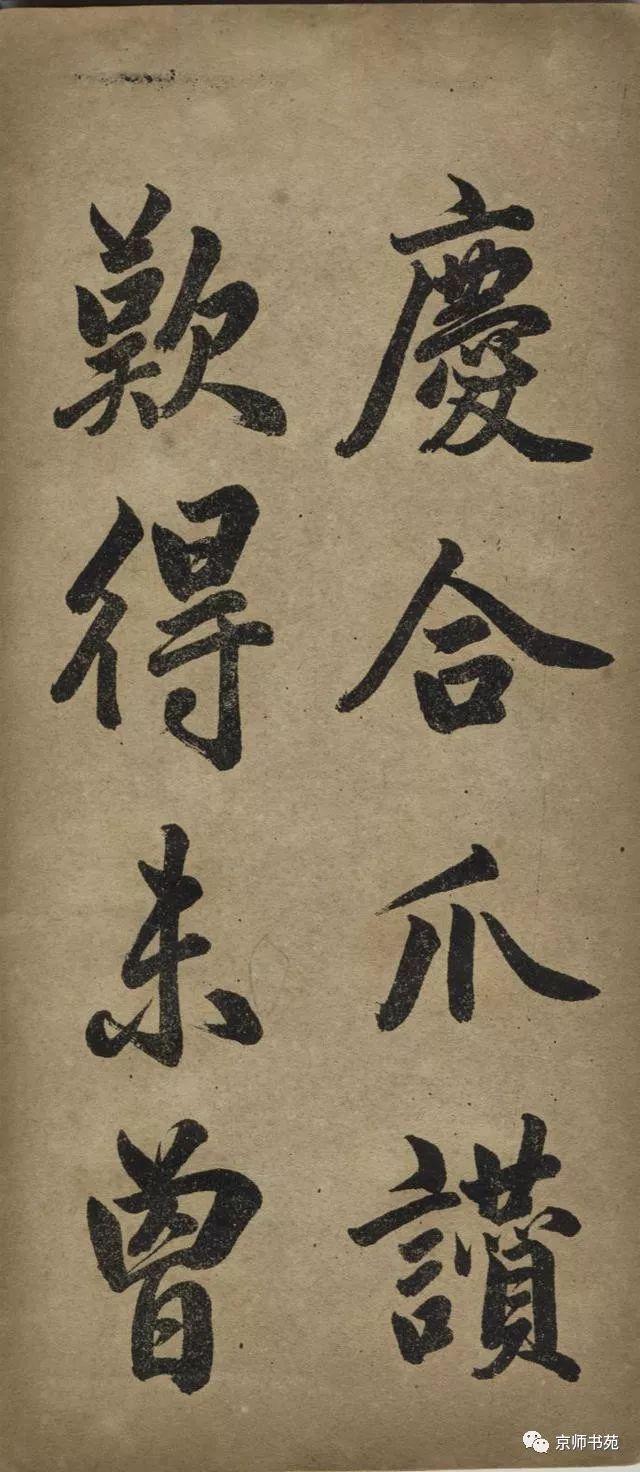 慶合爪讃
歎得未曾
京师书苑